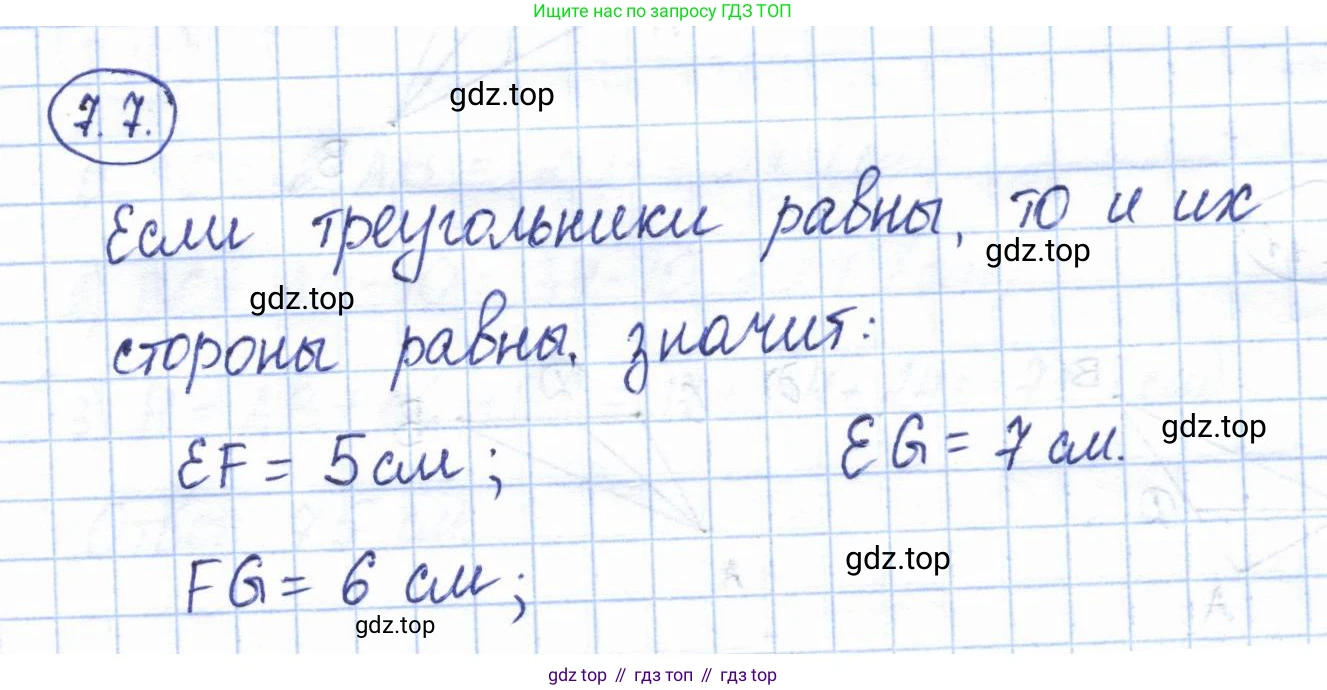 Ищите нас по запросу ГДЗ ТОП
7.7.
gdz.top
Если треугольники равны, то и их
gdz.top
gdz.top
стороны равны. значит:
EF = 5 см; EG = 7 см.
gdz.top
gdz.top
FG = 6 см;
gdz.top
gdz top // гдз топ // gdz top